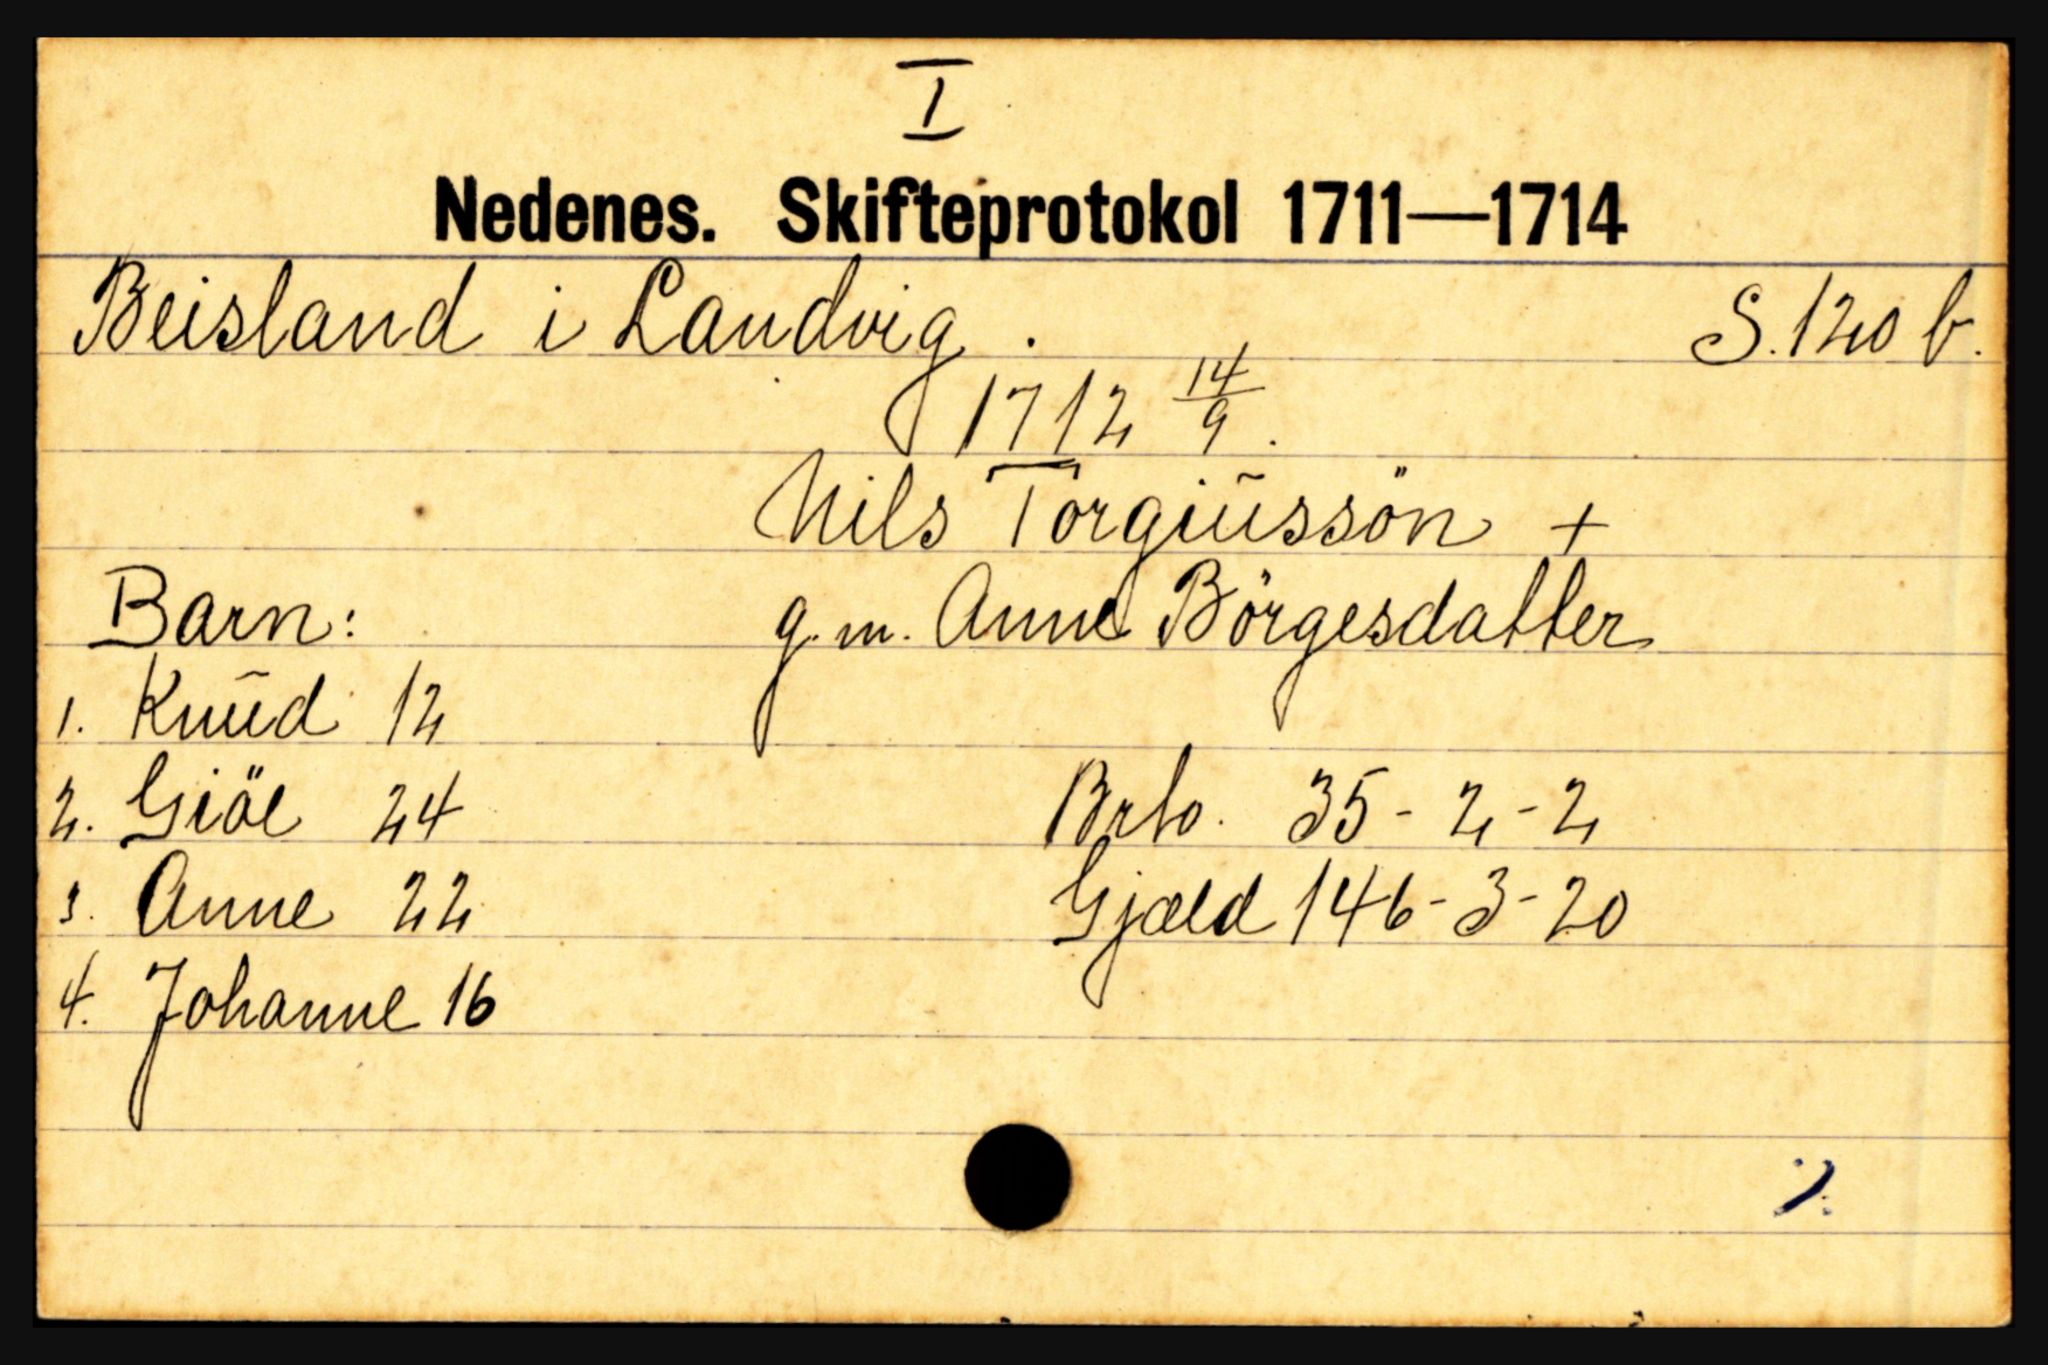 I
Nedenes. Skifteprotokol 1711—1714
Beisland i Landvig. S. 120 b.
1712 14/9.
Nils Torgiussön +
Barn: g. m. Anne Börgesdatter
1. Knud 12
2. Giöe 24 Brto. 35 - 2 - 2
3. Anne 22 Gjæld 146 - 3 - 20
4. Johanne 16